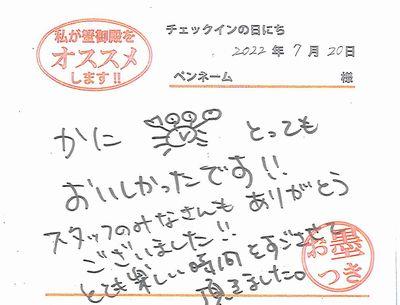 私が蟹御殿を
オススメ
します!!
チェックインの日にち
2022年7月20日
ペンネーム 様
かに とっても
おいしかったです!!
スタッフのみなさんも ありがとう
ございました!!
とても楽しい時間をすごさせて
頂きました。
お墨
つき